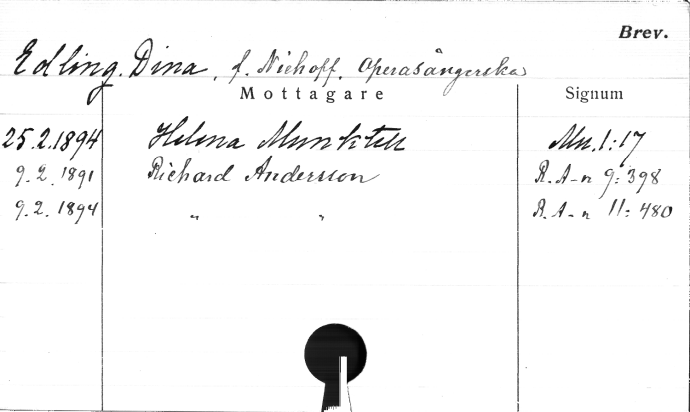 Brev.
Edling, Dina, f. Niehoff. Operasångerska
Mottagare Signum
25.2.1894 Helena Munktell Mu.1:17
9.2.1891 Richard Andersson R.A-n 9:398
9.2.1894 " " R.A-n 11:480